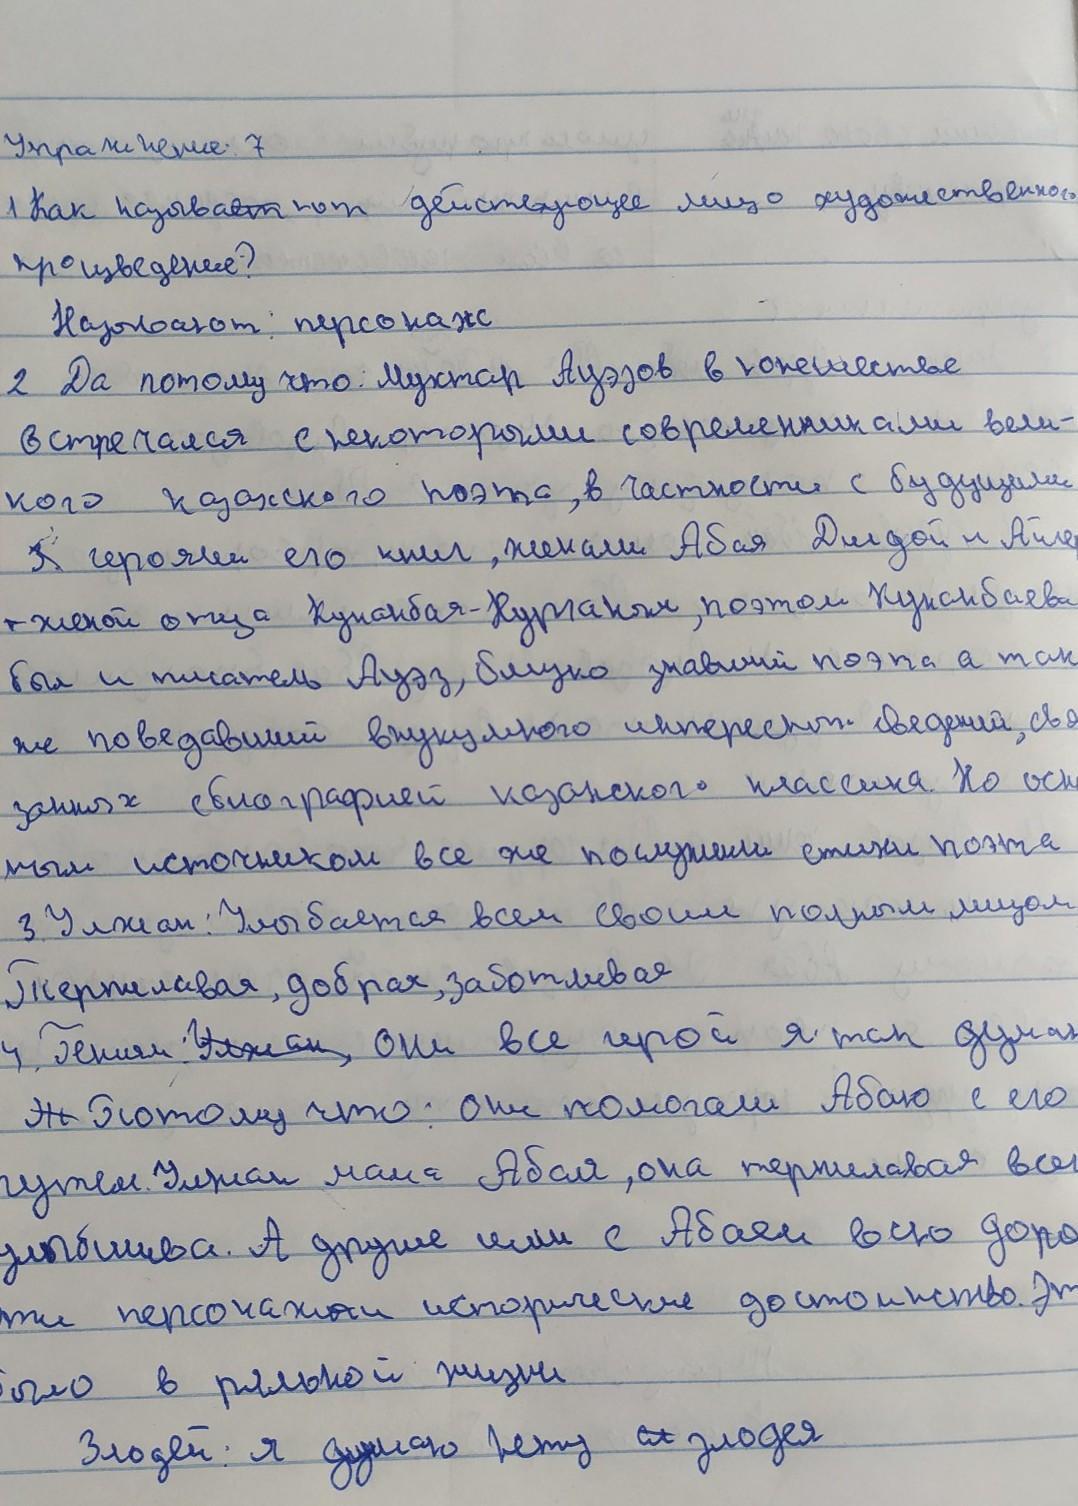 Упражнение: 7
1 Как называют действующее лицо художественного
произведение?
Называют: персонаж
2 Да потому что: Мухтар Ауэзов в юношестве
встречался с некоторыми современниками вели-
кого казахского поэта, в частности с будущими
героями его книг, женами Абая Дилдой и Айгер
женой отца Кунанбая-Нурганым, поэтом Кунанбаева
был и писатель Ауэз, близко знавший поэта а так
же поведавший внуку много интересных сведений, свя
занных с биографией казахского классика. Но осн
ным источником все же послужили стихи поэта
3. Улжан: Улыбается всем своим полным лицом,
Терпилавая, добрая, заботливая
4. Гении: Улжан, они все герой я так думаю
Потому что: они помогали Абаю с его
путем. Улжан мама Абая, она терпилавая всег
улыбчива. А другие шли с Абаем всю доро
ти персонажи исторические достоинство. Эт
было в ряльной жизни
Злодей: я думаю нету злодея